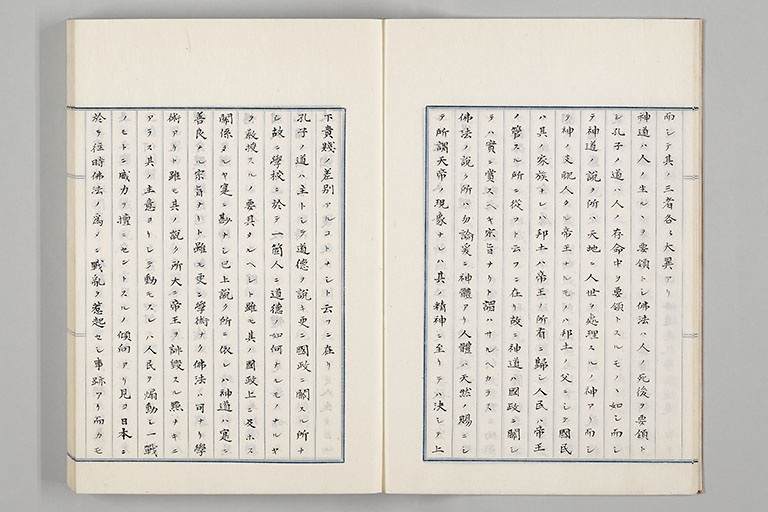 而シテ其ノ三者各々大異アリ
神道ハ人ノ生ルヽヲ要領トシ佛法ハ人ノ死後ヲ要領ト
シ孔子ノ道ハ人ノ存命中ヲ要領トスルモノヽ如シ而シ
テ神道ノ説ク所ハ天地ニ人世ヲ處理スルノ神アリ而シ
テ神ノ支配人タル帝王ナルモノハ邦土ノ父ニシテ國民
ハ其ノ家族トシハ邦土ハ帝王ノ所有ニ歸シ人民ハ帝王
ノ管スル所ニ從フト云フニ在リ故ニ神道ハ國政ニ關シ
テハ實ニ賞スヘキ宗旨ナリト謂ハサルヘカラス
佛法ノ説ク所ハ勿論愛ニ神體アリ人體ハ天然ノ賜ニシ
テ所謂天帝ノ現象ナレハ其ノ精神ニ至リテハ決シテ上
下貴賤ノ差別アルコトナシト云フニ在リ
孔子ノ道ハ主トシテ道德ヲ説キ更ニ國政ニ關スル所ナ
シ故ニ學校ニ於テ一箇人ニ道德ノ如何トルモノナルヤ
ヲ敎授スルノ要具タルヘシト雖モ其ノ國政上ニ及ホス
關係タルヤ寔ニ尠ナシ已上説ク所ニ依レハ神道ハ寔ニ
善良ナル宗旨ナリト雖モ更ニ學術ナク佛法ハ可ナリ學
術アリト雖モ其ノ説ク所大ニ帝王ヲ誹謗スル點ナキニ
アラス其ノ主意ヨリシテ動モスレハ人民ヲ煽動シ一戰
ノモトニ威力ヲ擅ニセントスルノ傾向アリ見ヨ日本ニ
於テ往時佛法ノ爲メニ戰亂ヲ惹起セシ事跡アリ而カモ